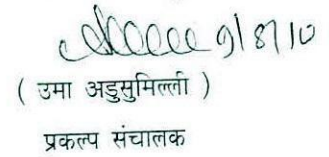 9/8/10
( उमा अडुसुमिल्ली )
प्रकल्प संचालक